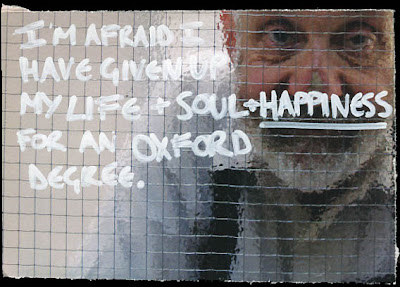 I'M AFRAID I
HAVE GIVEN UP
MY LIFE + SOUL + HAPPINESS
FOR AN OXFORD
DEGREE.